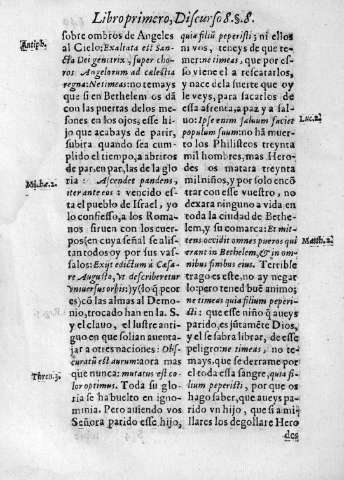 Libro primero, Discurso 8. §. 8.
Antiph.
sobre ombros de Angeles
al Cielo; Exaltata est San-
cta Dei genitrix, super cho-
ros Angelorum ad cælestia
regna: Ne timeas: no temays
que si en Bethelem os dã
con las puertas de los me-
sones en los ojos, esse hi-
jo que acabays de parir,
subira quando sea cum-
plido el tiempo, a abriros
de par, en par, las de la glo
Mich. 2.
ria: Ascendet pandens,
iter ante eos: vencido es-
ta el pueblo de Israel, y o
lo confiesso, a los Roma-
nos siruen con los cuer-
pos (en cuya señal se alis-
tan todos oy por sus vas-
salos: Exijt edictum à Cæsa-
re Augusto, vt describeretur
vniuersus orbis) y (lo q̃ peor
es) cõ las almas al Demo-
nio, trocado han en la S.
y el clauo, el lustre anti-
guo en que solian auenta-
jar a otras naciones: Obs-
curatũ est aurum: aora mas
Thren. 3.
que nunca: mutatus est co-
lor optimus. Toda su glo-
ria se ha buelto en igno-
minia. Pero auiendo vos
Señora parido esse hijo,
quia filiũ peperisti; ni ellos
ni vos, teneys de que te-
mer: ne timeas, que por es-
so viene el a rescatarlos,
y nace de la suerte que oy
le veys, para sacarlos de
essa afrenta, a paz y a sal-
Luc. 2.
uo: Ipse enim saluum faciet
populum suum: no hã muer-
to los Philisteos treynta
mil hombres, mas Hero-
des os matara treynta
mil niños, y por solo encõ
trar con esse vuestro, no
dexara ninguno a vida en
toda la ciudad de Bethe-
lem, y su comarca: Et mit-
Matth. 2.
tens occidit omnes pueros qui
erant in Bethelem, & in om-
nibus finibus eius. Terrible
trago es este, no ay negar
lo, pero tened buẽ animo;
ne timeas quia filium peperi-
sti: que esse niño q̃ aueys
parido, es jũtamẽte Dios,
y el se sabra librar, de esse
peligro: ne timeas, no te-
mays, que se derrame por
el toda essa sangre, quia fi-
lium peperisti, por que os
hago saber, que aueys pa-
rido vn hijo, que si a mi-
llares los degollare Hero
des